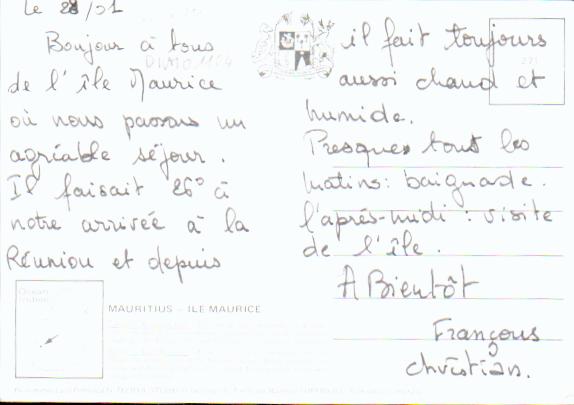 Le 28/01
Bonjour à tous
de l'île Maurice
où nous passons un
agréable séjour.
Il faisait 26° à
notre arrivée à la
Réunion et depuis
il fait toujours
aussi chaud et
humide.
Presque tous les
matins : baignade.
l'après-midi : visite
de l'île.
A Bientôt
François
Christian.
MAURITIUS – ILE MAURICE